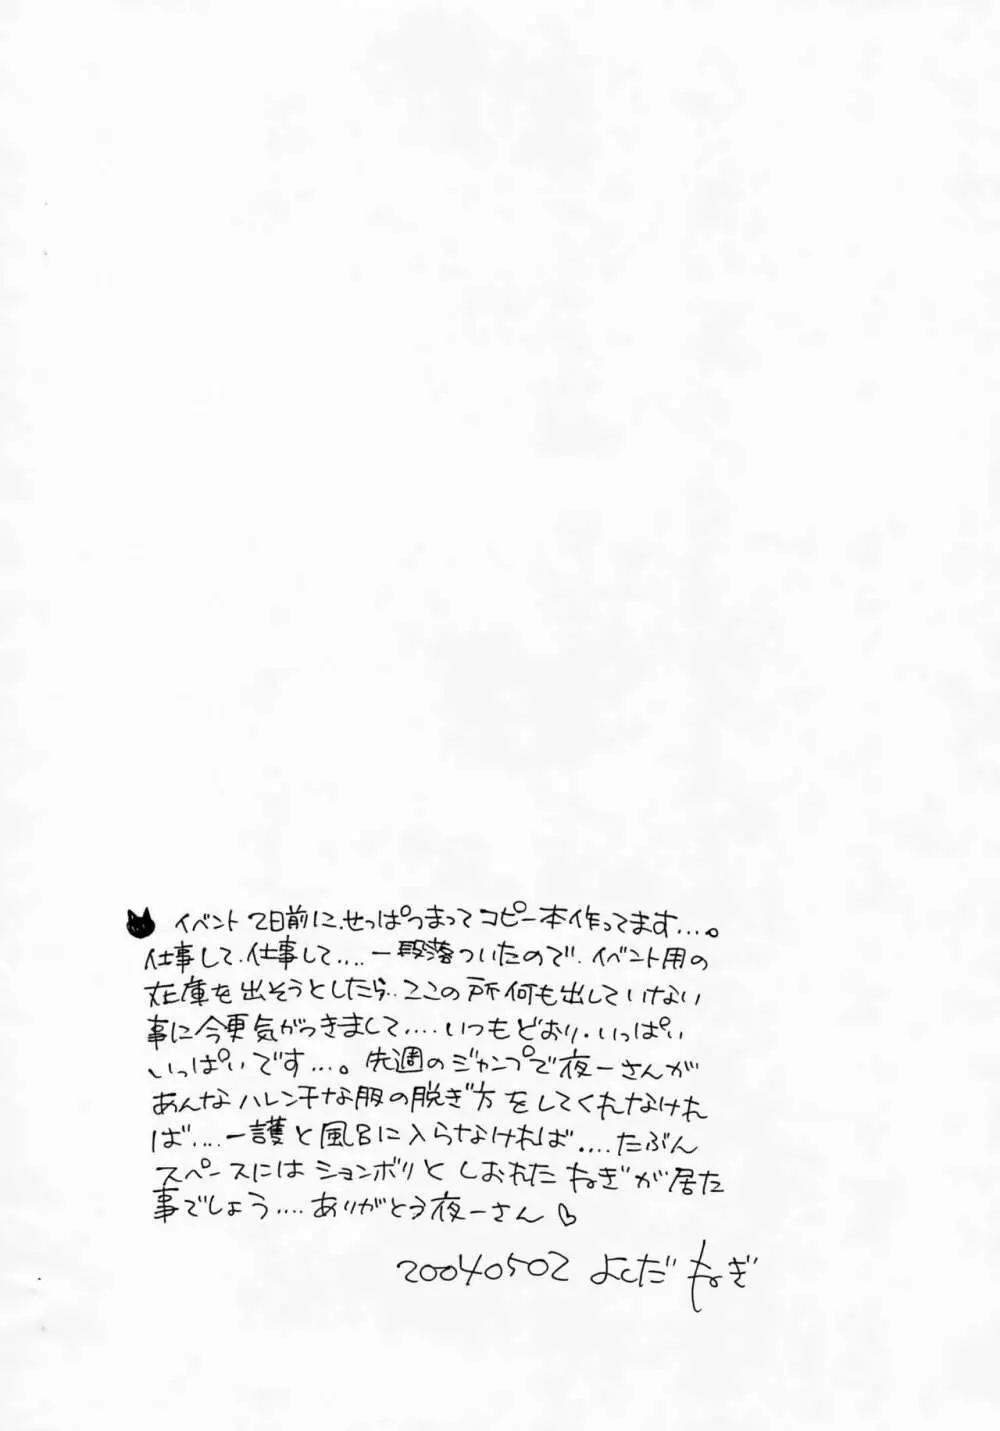 イベント2日前に、せっぱつまってコピー本作ってます…。
仕事して、仕事して…. 一段落ついたので、イベント用の
在庫を出そうとしたら、ここの所何も出していけない
事に今更気がつきまして…. いつもどおり・いっぱい
いっぱいです…。先週のジャンプで夜一さんが
あんなハレンチな服の脱ぎ方をしてくれなけれ
ば…. 一護と風呂に入らなければ…. たぶん
スペースにはションボリとしおれたねぎが居た
事でしょう…. ありがとう夜一さん♡
20040502 よしだ ねぎ